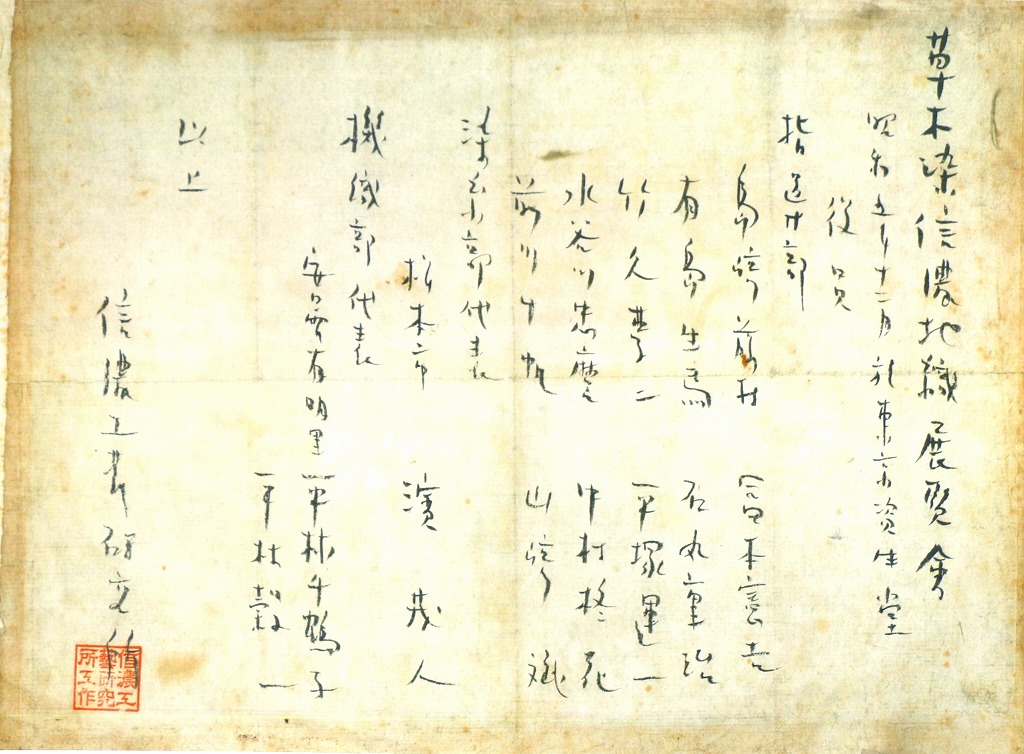 草木染信濃地織展覧会
昭和五年十二月 於東京資生堂
役員
指導部
島崎藤村 富本憲吉
有島生馬 石丸重治
竹久夢二 平塚運一
水谷川忠麿 中村柊花
前川千帆 山崎斌
染糸部代表
松本市 濱茂人
機織部代表
安曇有明里 平林千鶴子
平林穀一
以上
信濃工芸研究所